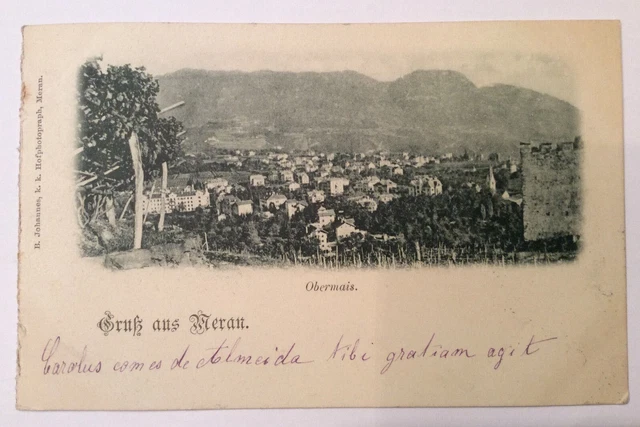 B. Johannes, k. k. Hofphotograph, Meran.
Obermais.
Gruß aus Meran.
Carolus comes de Almeida tibi gratiam agit